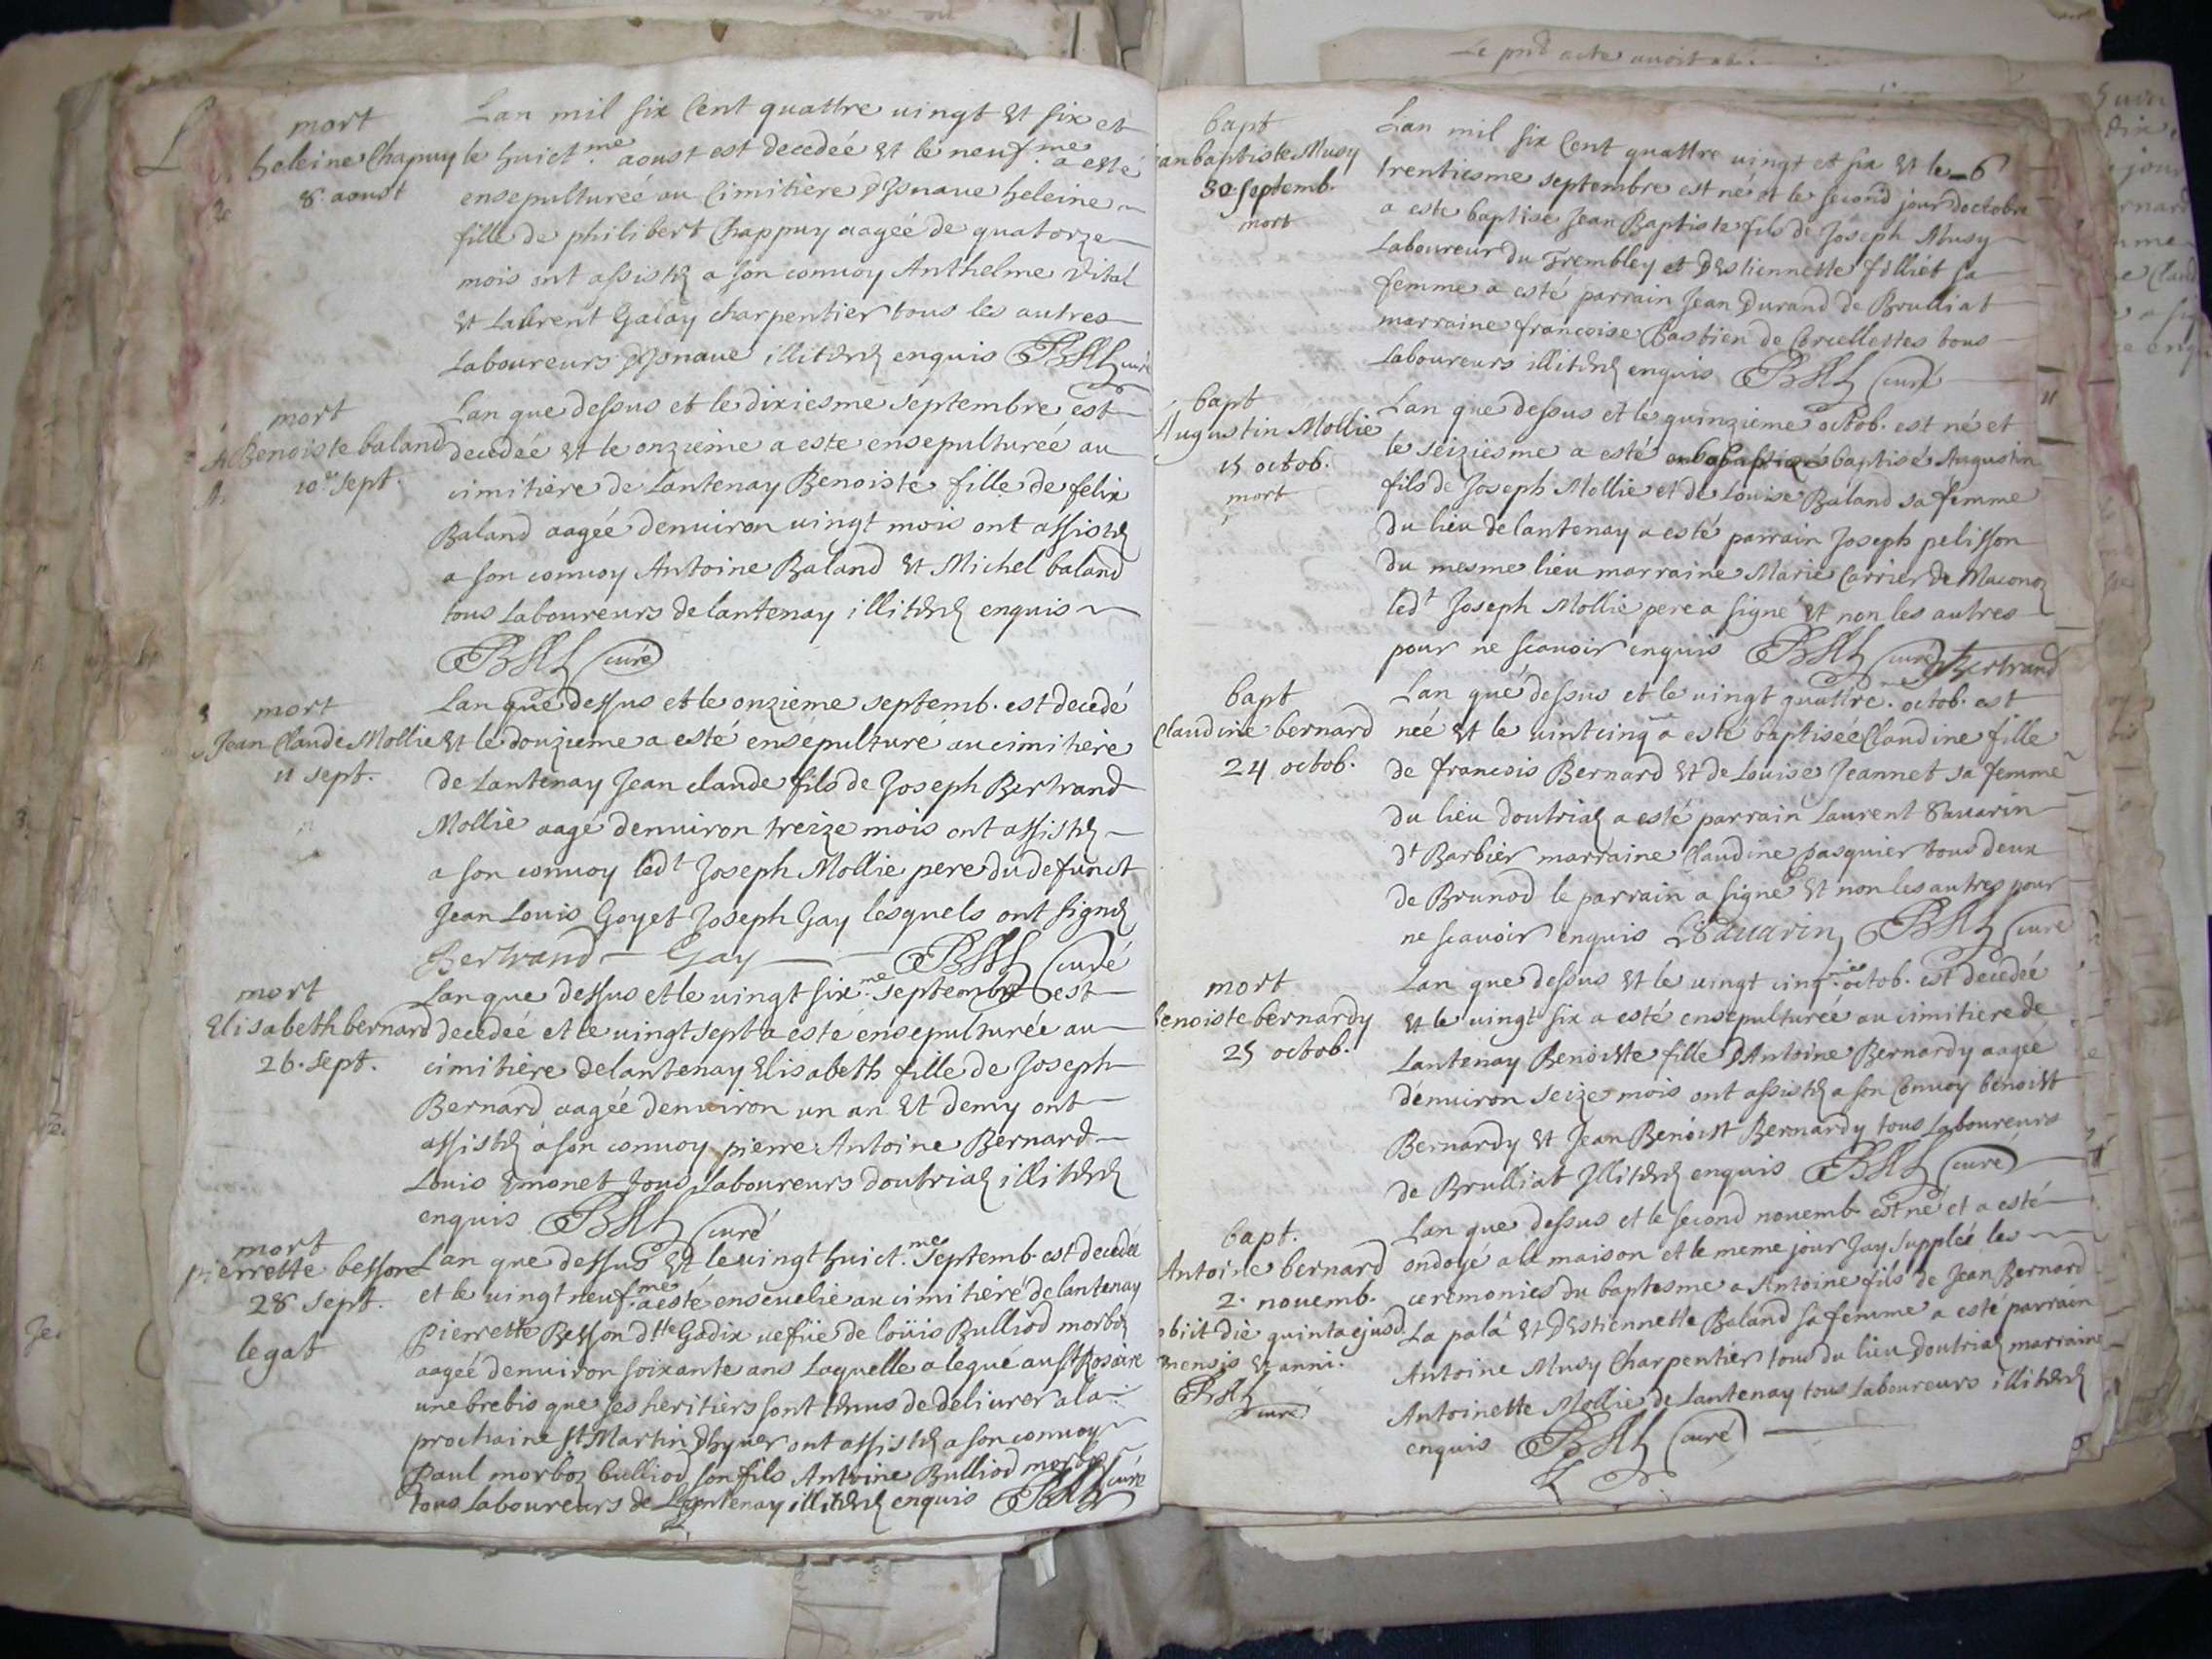 mort
heleine Chapuy
8. aoust
Lan mil six Cent quattre uingt et six et
le huict.me aoust est decedéé et le neuf.me a esté
ensepulturéé au Cimitière d'Jsnaue heleine
fille de philibert Chappuy aagéé de quatorze
mois ont assistez a son conuoy Anthelme Vital
et Laurent Galay charpentier tous les autres
Laboureurs d'Jsnaue illiterez enquis curé
mort
Benoiste baland
10e sept.
Lan que dessus et le dixiesme septembre est
decedéé et le onzieme a este ensepulturéé au
cimitière de Lantenay Benoiste fille de felix
Baland aagéé denuiron uingt mois ont assistez
a son conuoy Antoine Baland et Michel baland
tous Laboureurs de lantenay illiterez enquis
curé
mort
Jean Claude Mollie
11 sept.
Lan que dessus et le onzième septemb. est decedé
et le douzieme a esté ensépulturé au cimitière
de Lantenay Jean claude fils de Joseph Bertrand
Mollie aagé denuiron treize mois ont assistez
a son conuoy ledt Joseph Mollie pere du defunct
Jean Louis Goyet Joseph Gay lesquels ont signéz
Bertrand Gay curé
mort
Elisabeth bernard
26. sept.
Lan que dessus et le uingt six.me septembre est
decedéé et le uingt sept a esté ensepulturéé au
cimitière de lantenay Elisabeth fille de Joseph
Bernard aagéé denuiron un an et demy ont
assistez a son conuoy pierre Antoine Bernard
Louis Emonet tous Laboureurs doutriaz illiterez
enquis curé
mort
pierrette besson
28 sept.
legat
Lan que dessus et le uingt huict.me septemb. est decedéé
et le uingt neuf.me a esté enseuelie au cimitière de lantenay
Pierrette Besson dtte Godix uefüe de loüis Bulliod morboz
aagéé denuiron soixante ans Laquelle a legué au St Rosaire
une brebis que ses heritiers sont tenus de deliurer a la
prochaine St Martin dhyuer ont assistez a son conuoy
Paul morboz bulliod son fils Antoine Bulliod morboz
tous Laboureurs de Lantenay illiterez enquis curé
Le pnt acte auoit
bapt
jan baptiste Musy
30. septemb.
mort
Lan mil six Cent quattre uingt et six et le 6
trentiesme septembre est né et le second jour doctobre
a este baptise Jean Baptiste fils de Joseph Musy
Laboureur du Trembley et dEstiennette filliet sa
femme a esté parrain Jean Durand de Brulliat
marraine francoise Bastien de Corcellettes tous
Laboureurs illiterez enquis curé
bapt
Augustin Mollie
15 octob.
mort
Lan que dessus et le quinzieme octob. est né et
le seiziesme a esté baptisé Augustin
fils de Joseph Mollie et de Louise Baland sa femme
du lieu de lantenay a esté parrain Joseph pelisson
du mesme lieu marraine Marie Carrier de Maconoz
ledt Joseph Mollie pere a signé et non les autres
pour ne scauoir enquis curé Bertrand
bapt
Claudine bernard
24 octob.
Lan que dessus et le uingt quattre.me octob. est
néé et le uint cinq a esté baptiséé Claudine fille
de francois Bernard et de Louise Jeannet sa femme
du lieu doutriaz a esté parrain Laurent Sauarin
dt Barbier marraine Claudine pasquier tous deux
de Brunod le parrain a signé et non les autres pour
ne scauoir enquis L Sauarin curé
mort
benoiste bernardy
25 octob.
Lan que dessus et le uingt cinq.me octob. est decedéé
et le uingt six a esté ensepulturéé au cimitiere de
Lantenay Benoiste fille d'Antoine Bernardy aagéé
denuiron seize mois ont assistez a son Conuoy benoist
Bernardy et Jean Benoist Bernardy tous Laboureurs
de Brulliat Jlliterez enquis curé
bapt.
Antoine bernard
2. nouemb.
obiit die quinta ejusd
mensis et anni.
curé
Lan que dessus et le second nouemb. est né et a esté
ondoyé a la maison et le meme jour Jay suppléé les
ceremonies du baptesme a Antoine fils de Jean Bernard
La pala et dEstiennette Baland sa femme a esté parrain
Antoine Musy Charpentier tous du lieu doutriaz marraine
Antoinette Mollie de Lantenay tous Laboureurs illiterez
enquis curé